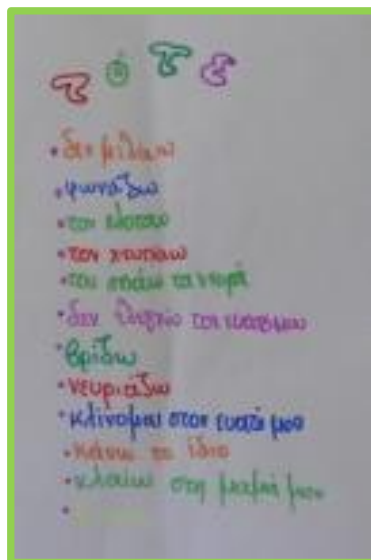 τότε
• δεν μιλάω
• φωνάζω
• τον
• τον χτυπάω
• του σπάω τα νεύρα
• δεν ελέγχω τον εαυτό μου
• βρίζω
• νευριάζω
• κλείνομαι στον εαυτό μου
• κάνω το ίδιο
• κλαίω στη μαμά μου
•